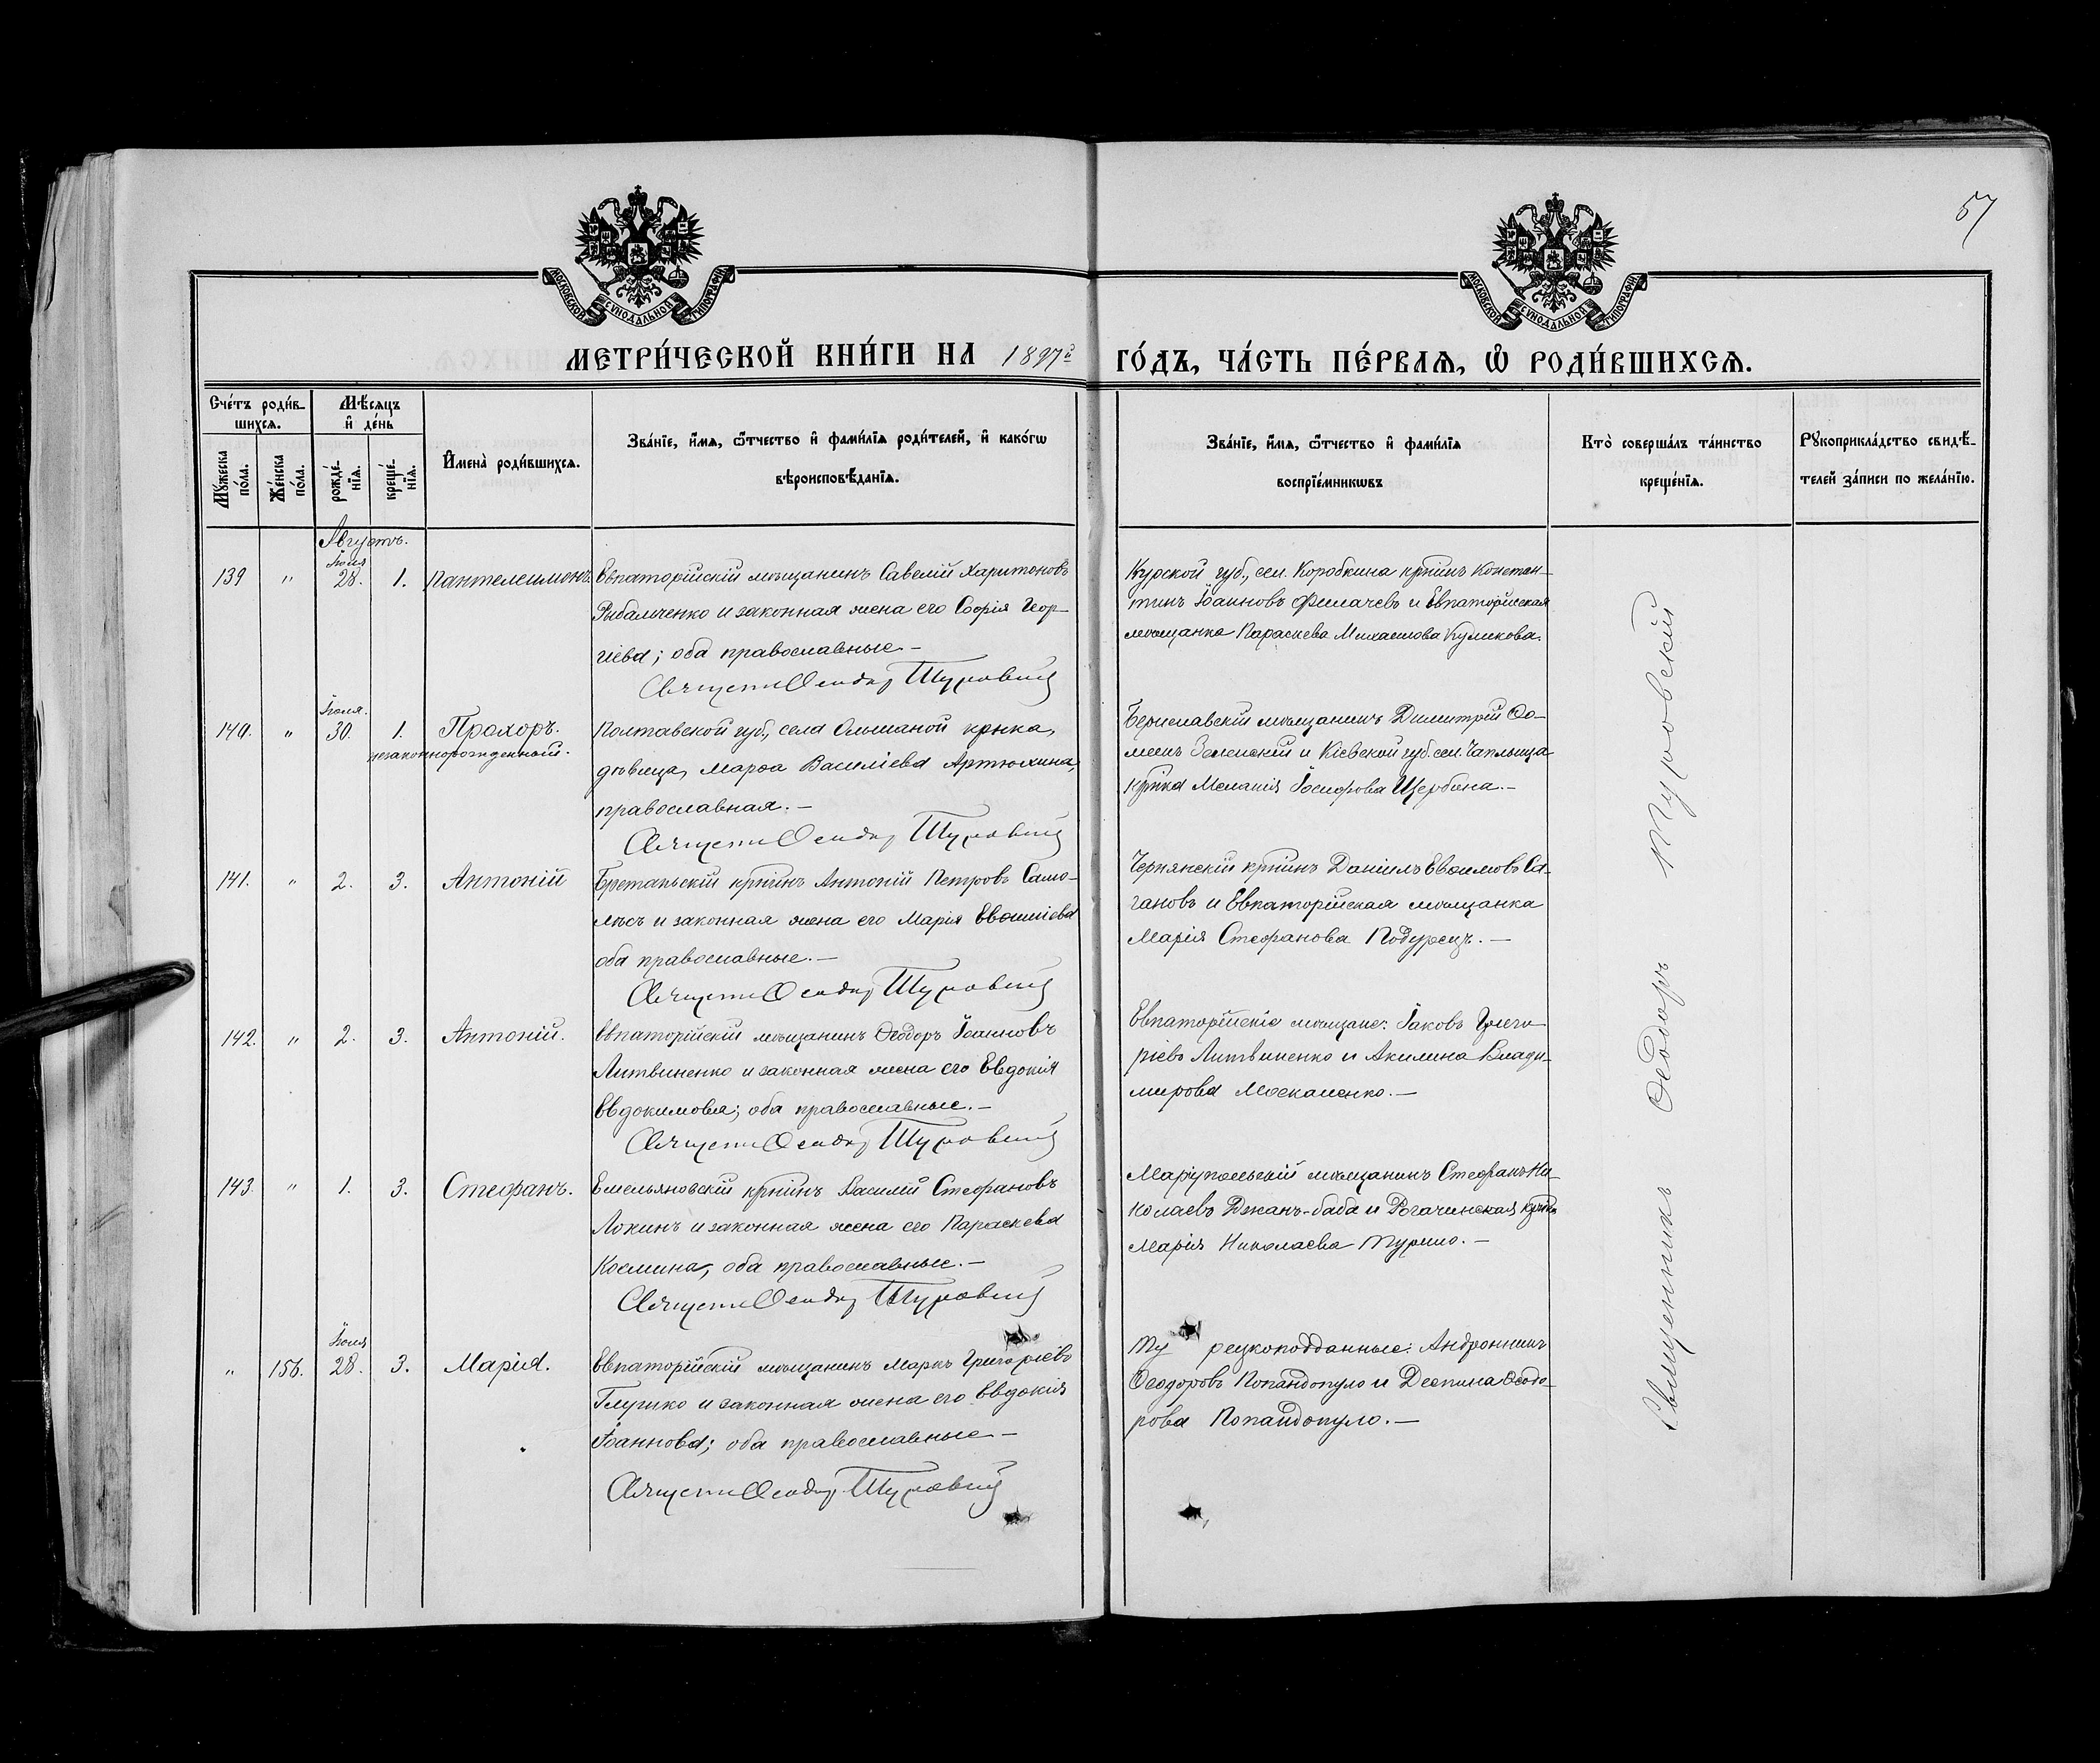 57
МОСКОВСКОЙ СѴНОДАЛЬНОЙ ТИПОГРАФІИ
МОСКОВСКОЙ СѴНОДАЛЬНОЙ ТИПОГРАФІИ
МЕТРИ́ЧЕСКОЙ КНИ́ГИ НА 1897й ГО́ДЪ, ЧА́СТЬ ПЕ́РВАЯ, Ѡ РОДИ́ВШИХСЯ.
Счéтъ роди́в-
шихся.
Мѣ́сяцъ
и҆ де́нь
Мꙋ́жеска
по́ла.
Же́нска
по́ла.
рожде́-
нїѧ.
креще́-
нїѧ.
И҆мена̀ роди́вшихся.
Зва́нїе, и҆́мѧ, ѻ҆́тчество и҆ фами́лїѧ роди́телей, и҆ како́гѡ
вѣроисповѣ́данїѧ.
Зва́нїе, и҆́мѧ, ѻ҆́тчество и҆ фами́лїѧ
воспрїе́мникѡвъ
Кто̀ соверша́лъ та́инство
креще́нїѧ.
Рꙋкоприкла́дство свидѣ́-
телей за́писи по жела́нїю.
Августъ.
Іюля
139 " 28. 1. Пантелеимонъ.
Евпаторійскій мѣщанинъ Савелій Харитоновъ
Рыбальченко и законная жена его Софія Геор-
гіева; оба православные -
Священ Ѳеодор Туровский
Курской губ., сел. Коробкина крѣинъ Констан-
тинъ Іоанновъ Филачевъ и Евпаторійская
мѣщанка Параскева Михаилова Куликова.
Іюля.
140. " 30. 1. Прохоръ.
незаконнорожденный.
Полтавской губ., села Ольшаной крѣка,
дѣвица, Марѳа Василіева Артюхина,
православная. -
Священ Ѳеодор Туровский
Бериславскій мѣщанинъ Димитрій Ѳо-
минъ Зеленскій и Кіевской губ. сел. Чаплища
крѣка Меланія Іосифова Щербина. -
141. " 2. 3. Антоній
крѣинъ Антоній Петровъ Само-
лѣсъ и законная жена его Марія Евѳиміева
оба православные. -
Священ Ѳеодор Туровский
Чернянскій крѣинъ Даніилъ Евѳимовъ Са-
гановъ и Евпаторійская мѣщанка
Марія Стефанова Подурецъ. -
142. " 2. 3. Антоній.
Евпаторійскій мѣщанинъ Ѳеодоръ Іоанновъ
Литвиненко и законная жена его Евдокія
Евдокимова; оба православные. -
Священ Ѳеодор Туровский
Евпаторійскіе мѣщане: Іаковъ Григо-
ріевъ Литвиненко и Акилина Влади-
мирова Москаленко. -
143. " 1. 3. Стефанъ.
Емельяновскій крѣинъ Василій Стефановъ
Локинъ и законная жена его Параскева
Космина, оба православные. -
Священ Ѳеодор Туровский
Маріупольскій мѣщанинъ Стефанъ Ни-
колаевъ Джанъ-баба и Рогачинская крѣка
Марія Николаева Турило. -
Іюля
" 156. 28. 3. Марія.
Евпаторійскій мѣщанинъ Маркъ Григоріевъ
и законная жена его Евдокія
Іоаннова; оба православные -
Священ Ѳеодор Туровский
Ту рецкоподданные: Андроникъ
Ѳеодоровъ Попандопуло и Деспина Ѳеодо-
рова Попандопуло. -
Священникъ Ѳеодоръ Туровский